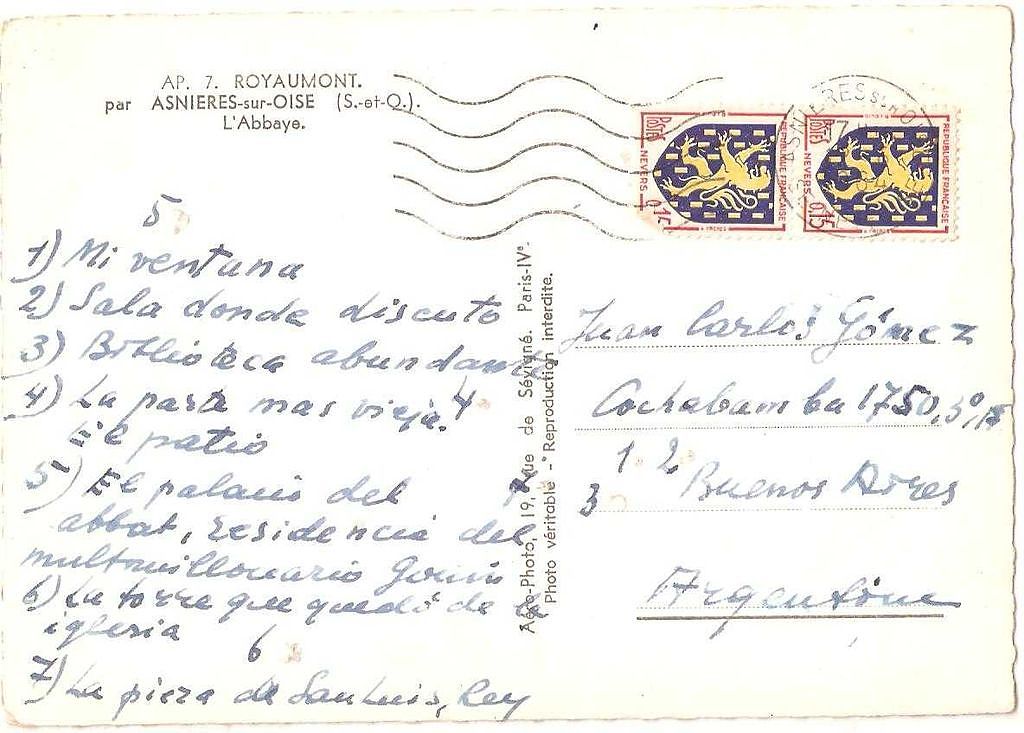 AP. 7. ROYAUMONT.
par ASNIERES-sur-OISE (S.-et-O.).
L'Abbaye.
5
1) Mi ventana
2) Sala donde discuto
3) Biblioteca abundante
4) La parte mas vieja. 4
El patio
5) El palacio del
abbat, residencia del
multimillonario Gouin
6) La torre que quedó de la
iglesia
6
7) La pieza de San Luis, Rey
Aéro-Photo, 19, rue de Sévigné. Paris-IVᵉ.
Photo véritable - Reproduction interdite.
POSTES
NEVERS
0,15
REPUBLIQUE FRANÇAISE
POSTES
NEVERS
0,15
REPUBLIQUE FRANÇAISE
ASNIERES
Juan Carlos Gómez
Cochabamba 1750, 3º,
1 2
Buenos Aires
3
7
Argentine